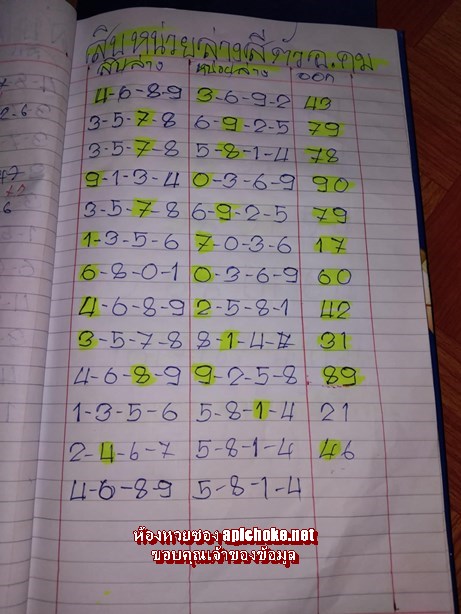 สิบหน่วยล่างสี่ตัวอ.คม
สิบล่าง หน่วยล่าง ออก
4-6-8-9 3-6-9-2 43
3-5-7-8 6-9-2-5 79
3-5-7-8 5-8-1-4 78
9-1-3-4 0-3-6-9 90
3-5-7-8 6-9-2-5 79
1-3-5-6 7-0-3-6 17
6-8-0-1 0-3-6-9 60
4-6-8-9 2-5-8-1 42
3-5-7-8 8-1-4-7 31
4-6-8-9 9-2-5-8 89
1-3-5-6 5-8-1-4 21
2-4-6-7 5-8-1-4 46
4-6-8-9 5-8-1-4
ห้องหวยซอง apichoke.net
ขอบคุณเจ้าของข้อมูล